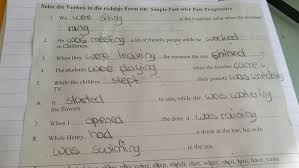 the Verbs in the
from the Simple Past
Past Progressive
1. We were siting at the breakfast table when the doorbell
rang
2. He was meeting a lot of friendly people while he worked
in California.
3. When they were leaving the museum the sun shined
4. The students were playing when the teacher came in
5. While the children slept their parents was watching
TV.
6. It started to rain, while she was watering
the flowers
7. When I opened the door it was raining
8. While Henry had a drink at the bar, his wife
was swimming in the sea.